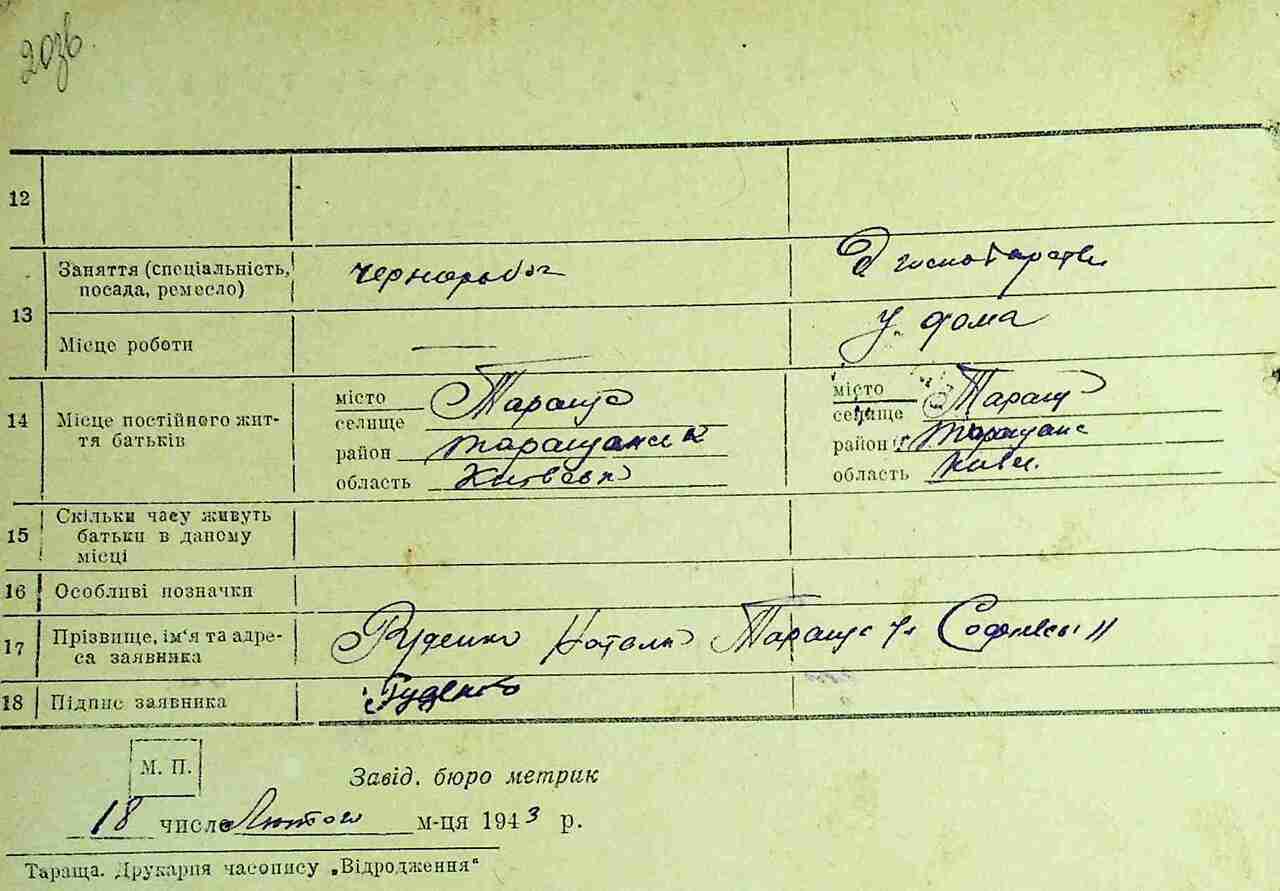 203б
12
Заняття (спеціальність, посада, ремесло) чернороб
13
Місце роботи — у дома
14 Місце постійного життя батьків
місто Тараща місто Таращ
селище селище
район Таращанськ район Таращанс
область Київськ область Київ.
15 Скільки часу живуть
батьки в даному
місці
16 Особливі позначки
17 Прізвище, ім'я та адре-
са заявника Руденко Наталя Тараща ул 11
18 Підпис заявника Руденко
М. П.
Завід. бюро метрик
18 число Лютого м-ця 1943 р.
Тараща. Друкарня часопису „Відродження"